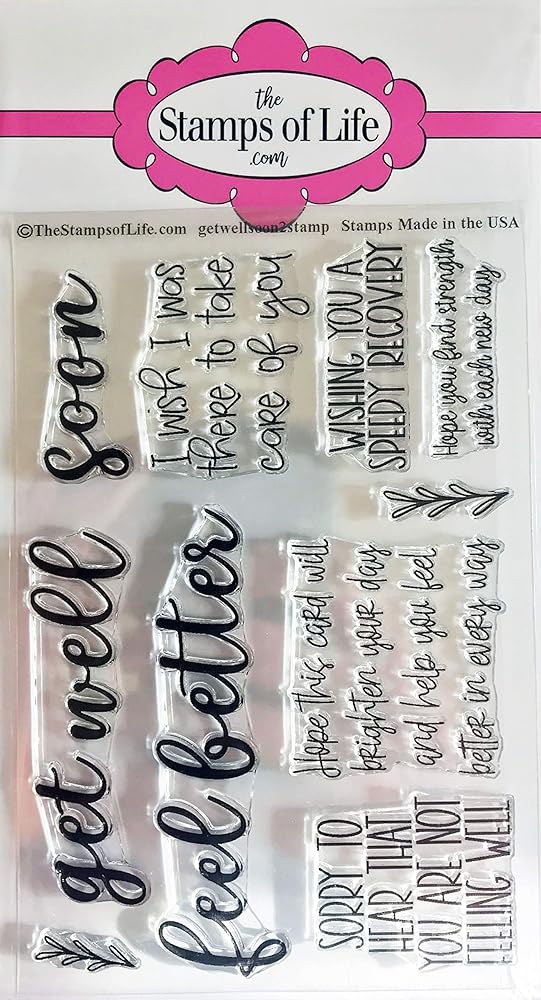 the
Stamps of Life
.com
©TheStampsofLife.com getwellsoon2stamp Stamps Made in the USA
soon
I wish I was
there to take
care of you
WISHING YOU A
SPEEDY RECOVERY
Hope you find strength
with each new day
get well
feel better
Hope this card will
brighten your day
and help you feel
better in every way
SORRY TO
HEAR THAT
YOU ARE NOT
FEELING WELL